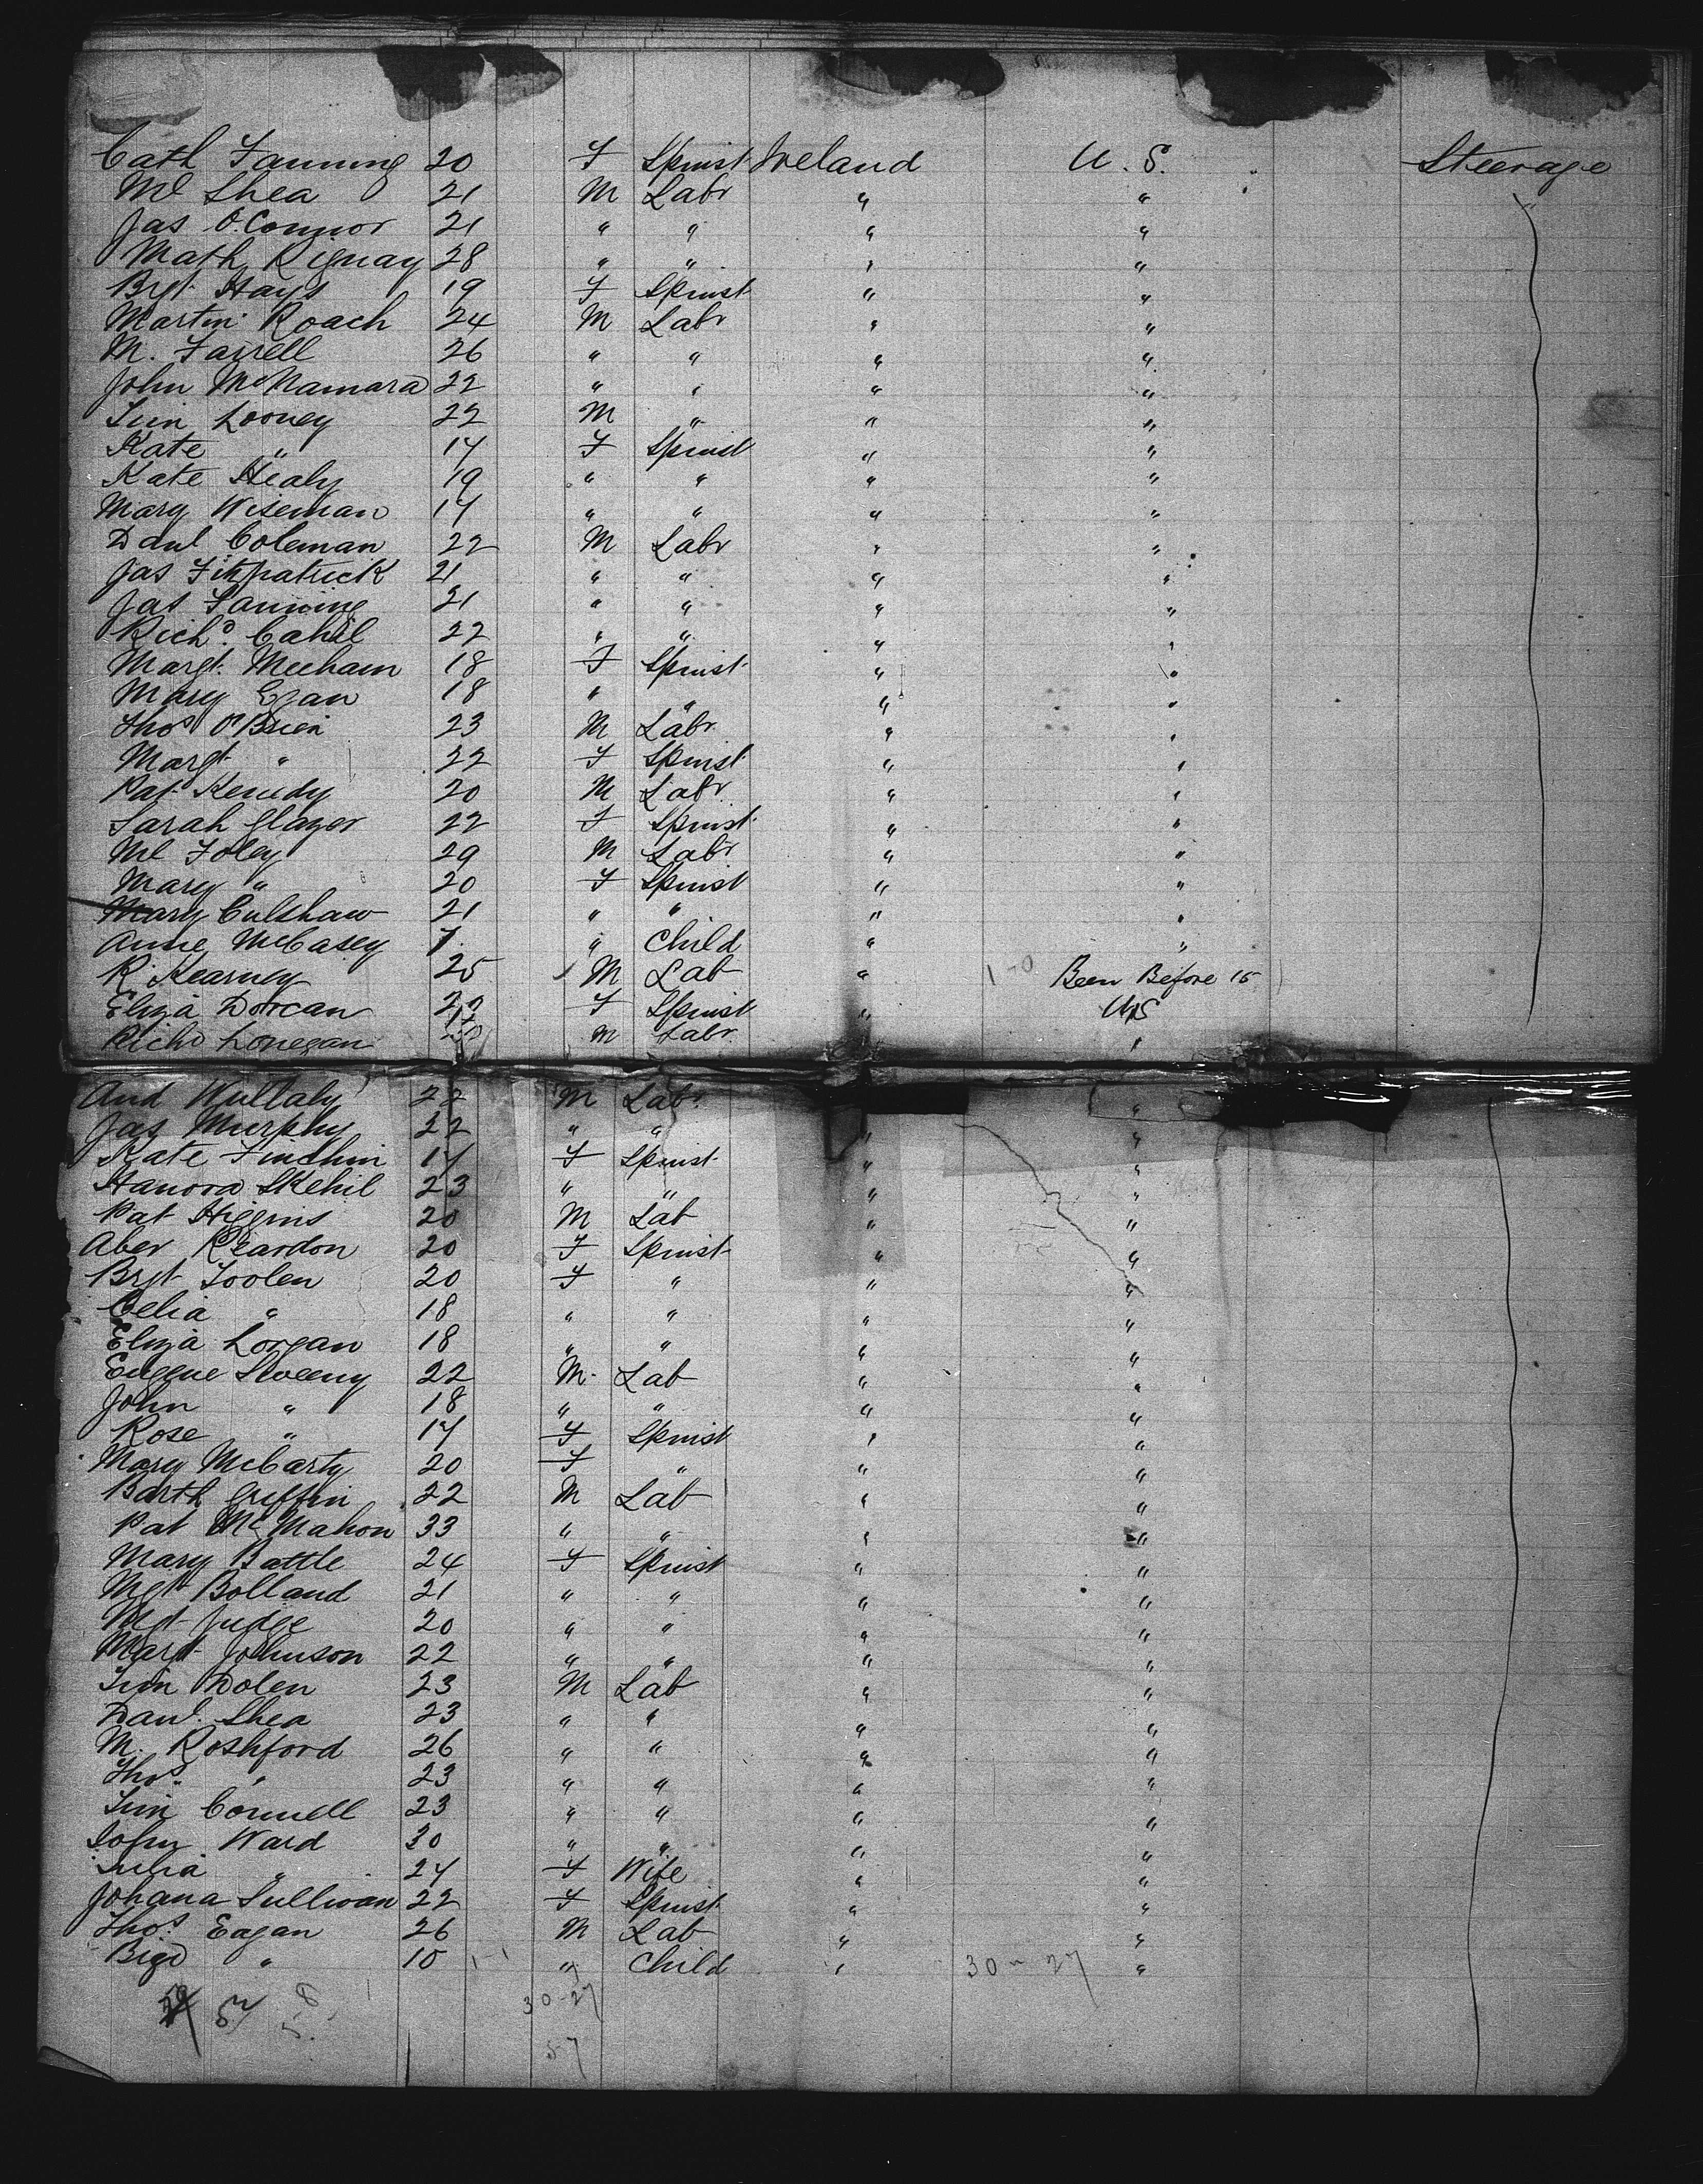 Cath Fanning 20 F Spinst Ireland U.S. Steerage
Ml Shea 21 M Labr " " "
Jas O'Connor 21 " " " "
Math Rignay 28 " " " "
Bgt Hays 19 F Spinst " "
Martin Roach 24 M Labr " "
M. Farrell 26 " " " "
John McNamara 22 " " " "
Tim Looney 22 M " " "
Kate " 17 F Spinst " "
Kate Healy 19 " " " "
Mary Wiseman 17 " " " "
Danl Coleman 22 M Labr " "
Jas Fitzpatrick 21 " " " "
Jas Fanning 21 " " " "
Richd. Cahil 22 " " " "
Margt. Meeham 18 F Spinst " "
Mary Egan 18 " " " "
Thos O'Brien 23 M Labr " "
Margt " 22 F Spinst " "
Pat Kenedy 20 M Labr " "
Sarah Glazer 22 F Spinst " "
Ml Foley 29 M Labr " "
Mary " 20 F Spinst " "
Mary Culshaw 21 " " " "
Anne McCasey 7. " Child " "
R. Kearney 25 M Lab " 1-0 Been Before 15
Eliza Dorcan 22 F Spinst " US
Richd Lonegan M Labr "
And Wullaly 22 M Labr "
Jas Murphy 22 " " " "
Kate Finchin 17 F Spinst " "
Hanora Skehil 23 " " " "
Pat Higgins 20 M Lab " "
Aber Reardon 20 F Spinst " "
Brgt Toolen 20 F " " "
Celia " 18 " " " "
Eliza Lorgan 18 " " " "
Eugene Sweeny 22 M. Lab " "
John " 18 " " " "
Rose " 17 F Spinst " "
Mary McCarty 20 F " " "
Barth Griffin 22 M Lab " "
Pat McMahon 33 " " " "
Mary Battle 24 F Spinst " "
Mgt Bolland 21 " " " "
Mgt Judge 20 " " " "
Margt Johnson 22 " " " "
Tim Dolen 23 M Lab " "
Danl. Shea 23 " " " "
M. Roshford 26 " " " "
Thos. " 23 " " " "
Tim Connell 23 " " " "
John Ward 30 " " " "
Julia " 27 F Wife " "
Johana Sullivan 22 F Spinst " "
Thos. Eagan 26 M Lab " "
Bigd " 10 1-1 " Child " 30-27 "
57 30-27
57